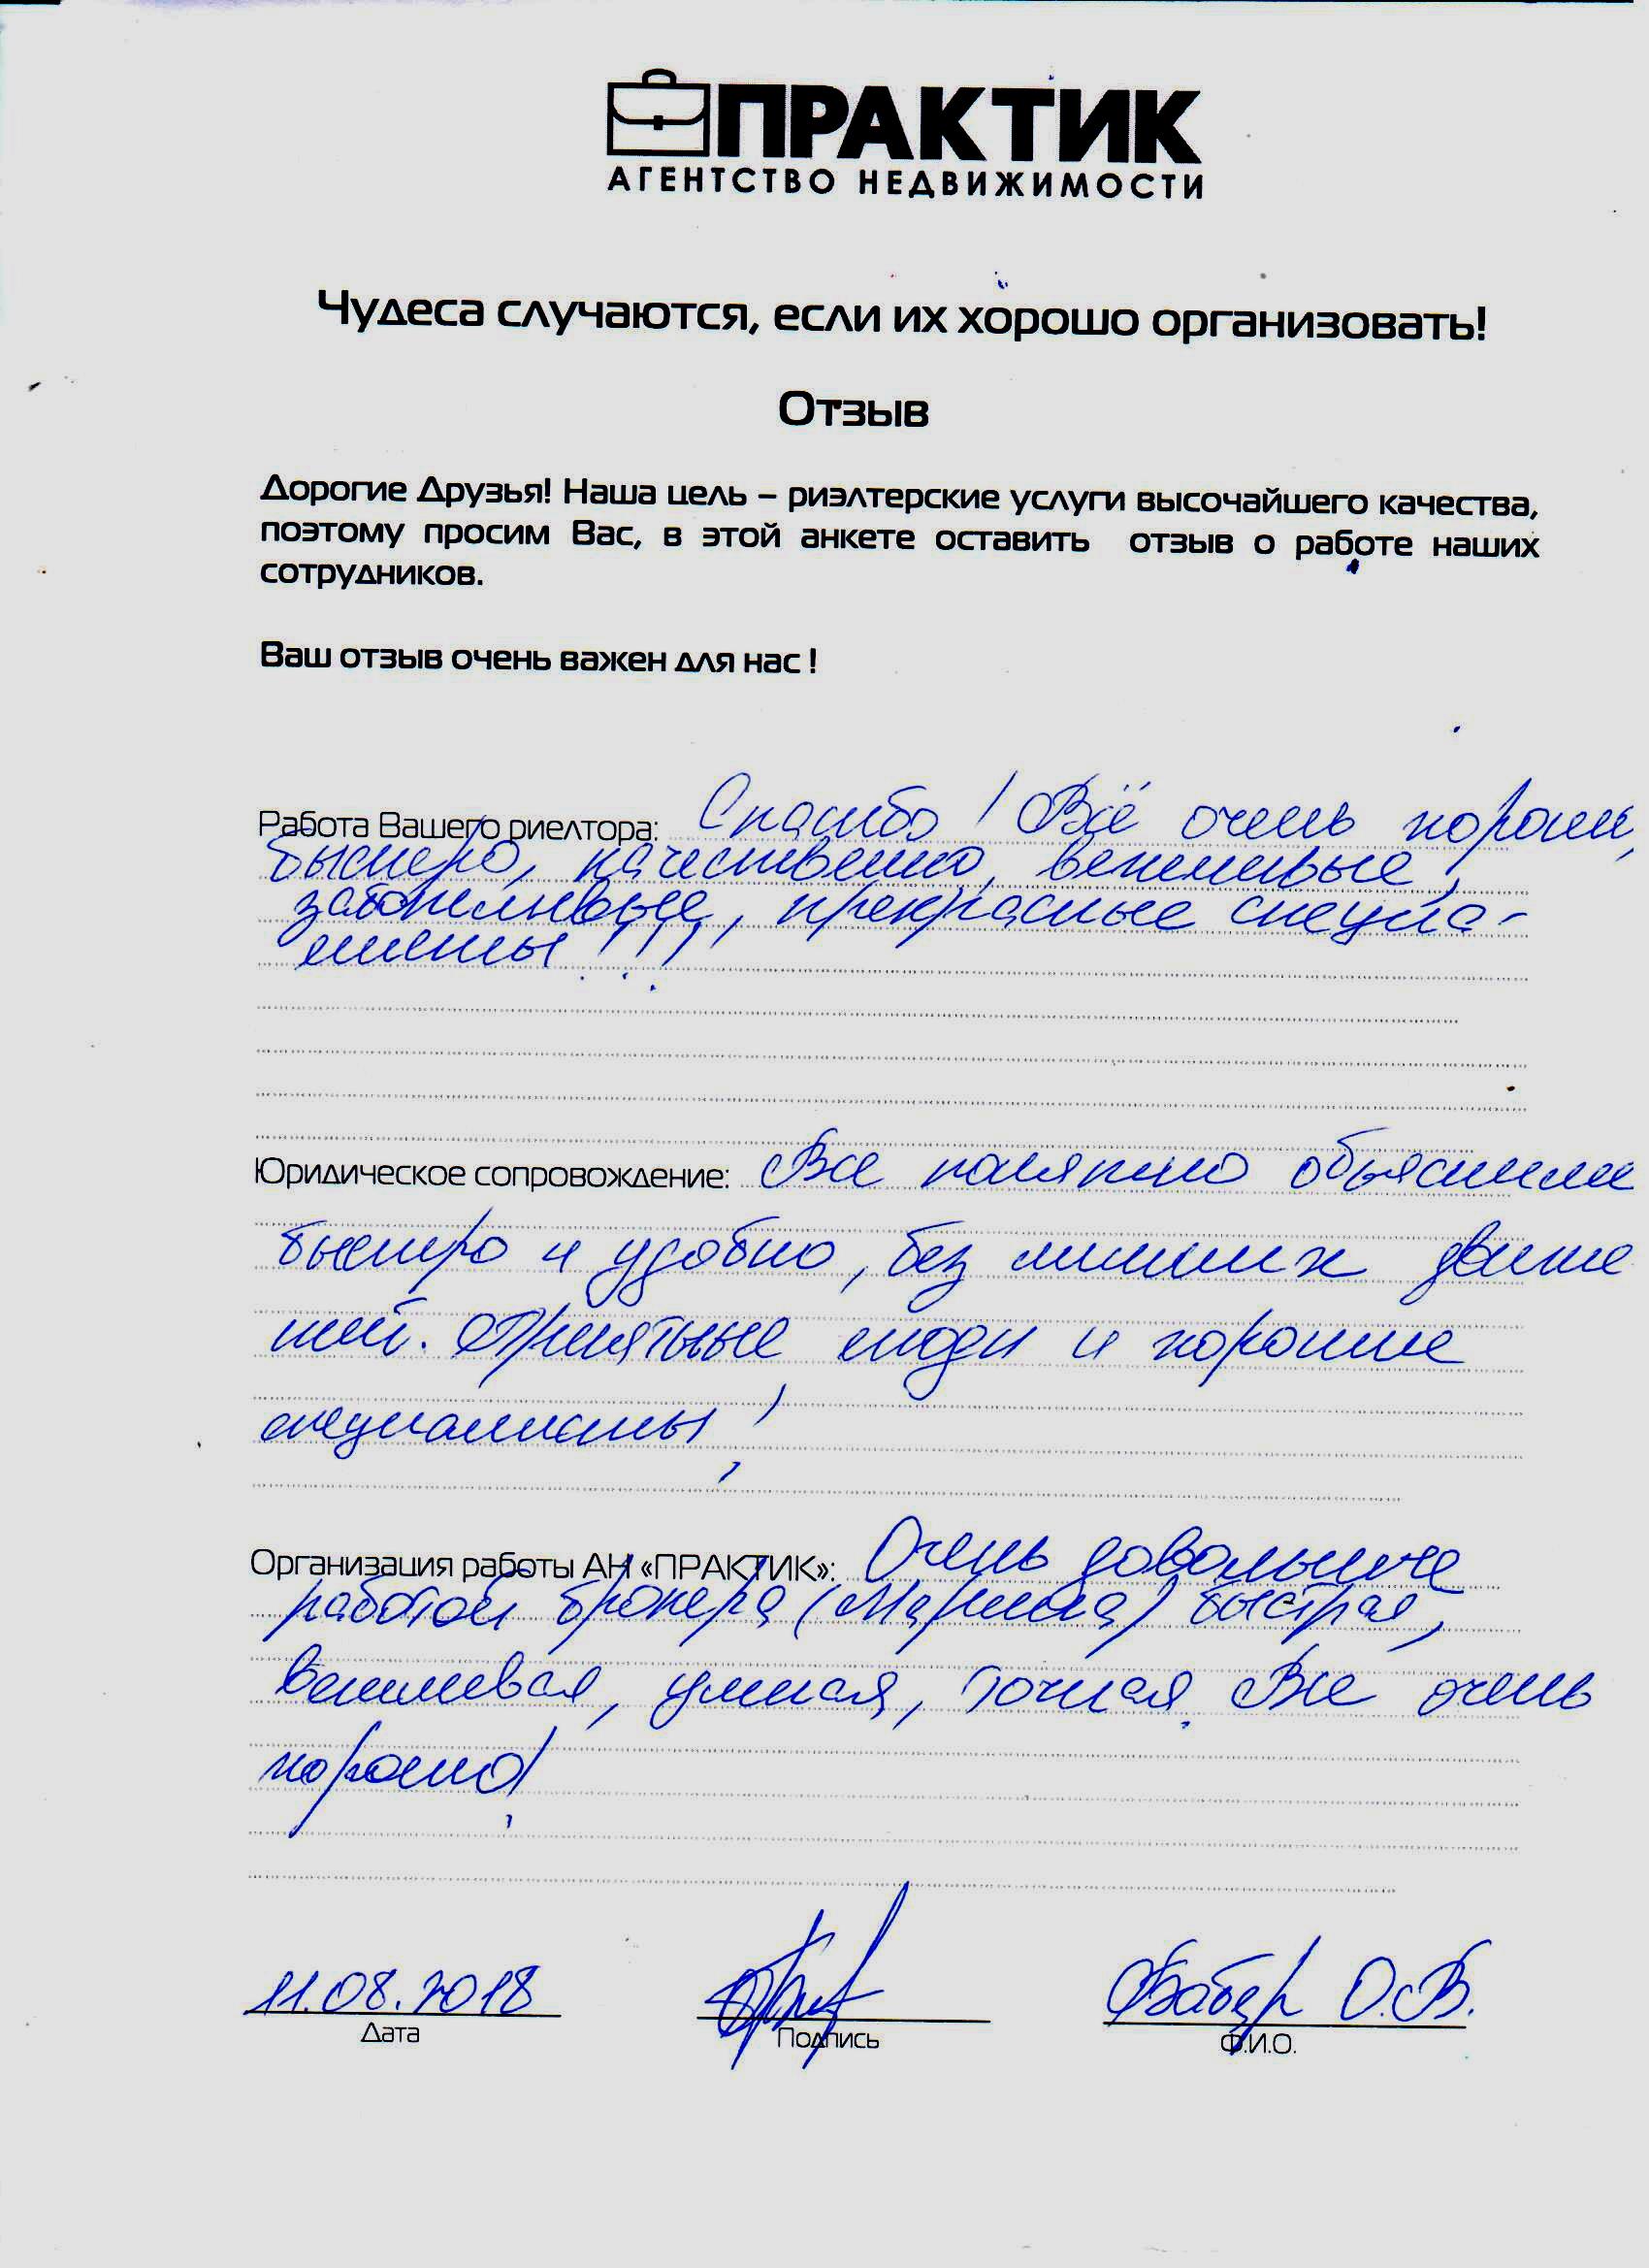 ПРАКТИК
АГЕНТСТВО НЕДВИЖИМОСТИ
Чудеса случаются, если их хорошо организовать!
Отзыв
Дорогие Друзья! Наша цель – риэлтерские услуги высочайшего качества,
поэтому просим Вас, в этой анкете оставить отзыв о работе наших
сотрудников.
Ваш отзыв очень важен для нас !
Работа Вашего риелтора: Спасибо! Всё очень хорошо,
быстро, качественно, вежливые,
заботливые, прекрасные специа-
листы!!!
Юридическое сопровождение: Все понятно объяснили
быстро и удобно, без лишних движе
ний. Приятные люди и хорошие
специалисты!
Организация работы АН «ПРАКТИК»: Очень довольные
работой брокера (Марина) быстрая,
вежливая, умная, точная. Все очень
хорошо!
11.08.2018 О.В.
Дата Подпись Ф.И.О.